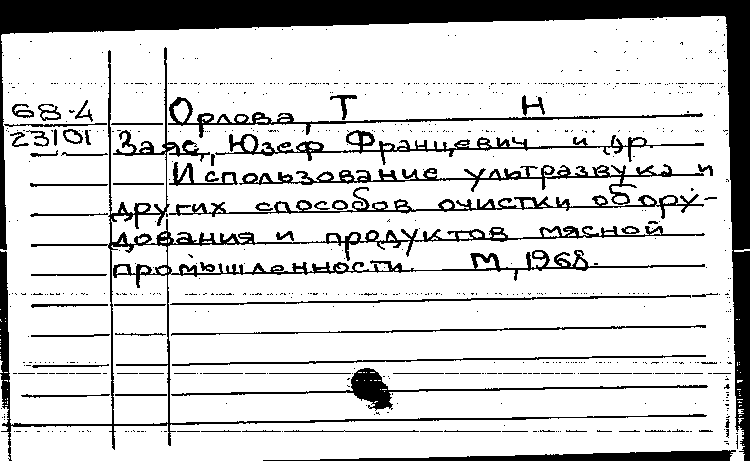 68-4 Орлова, Т Н
23101 Заяс, Юзеф Францевич и др.
Использование ультразвука и
других способов очистки обору-
дования и продуктов мясной
промышленности. М, 1968.